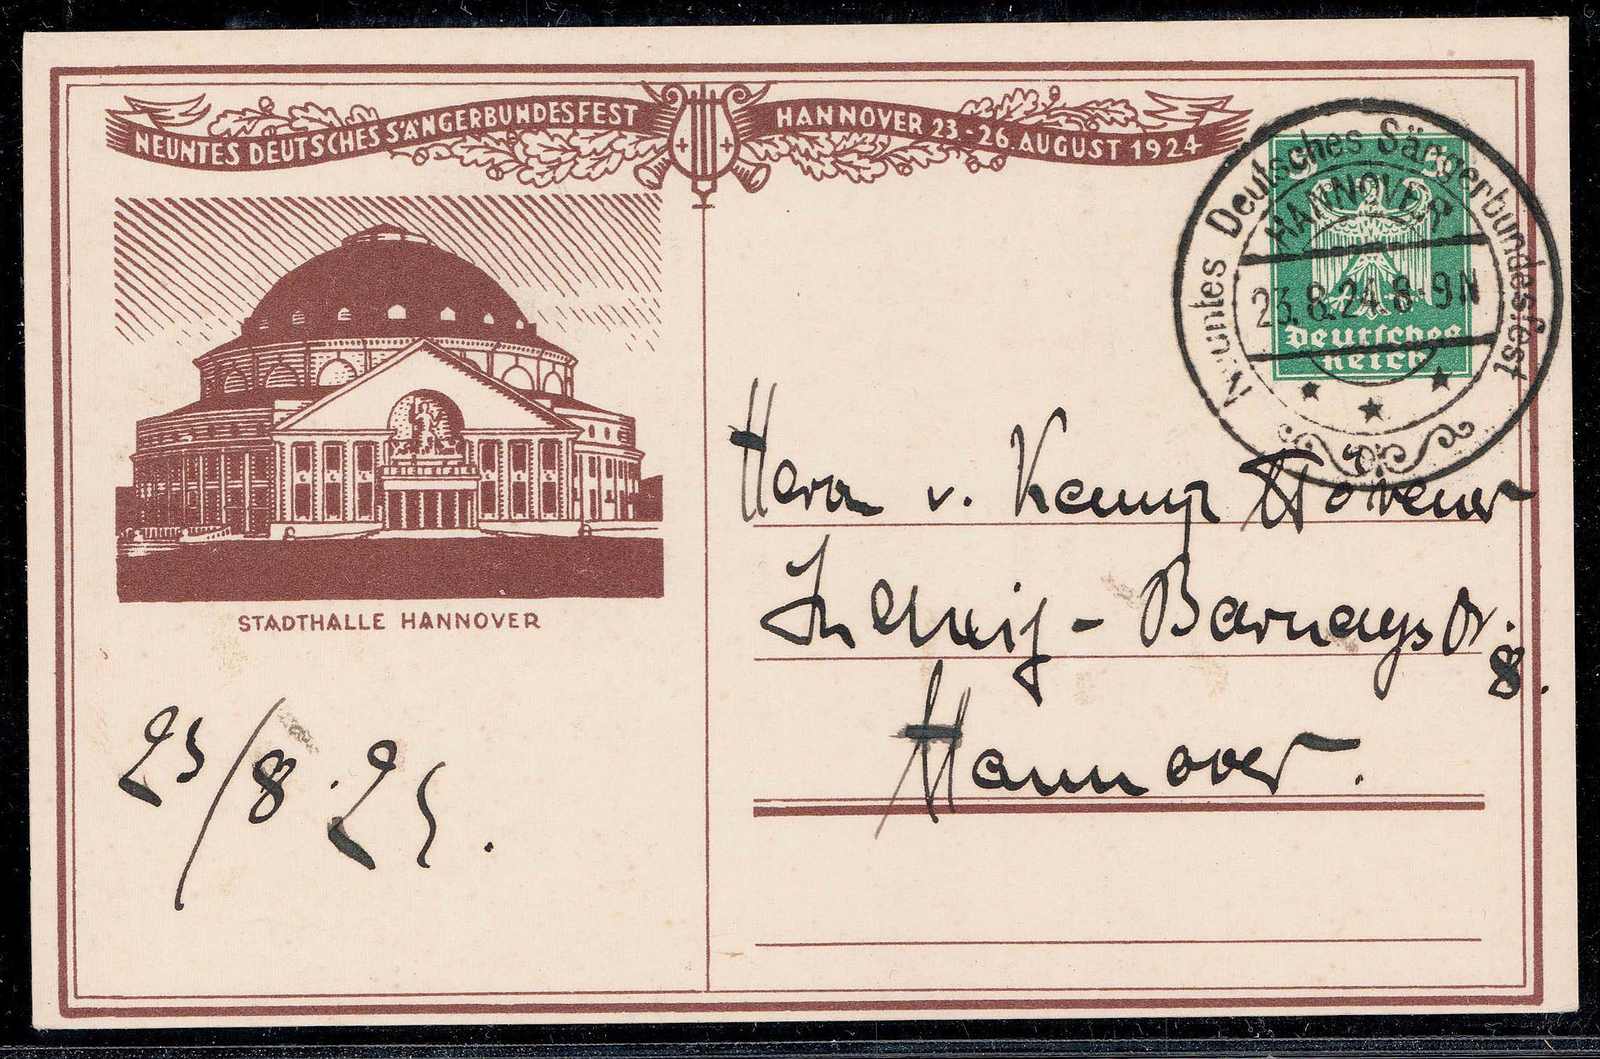 NEUNTES DEUTSCHES SÄNGERBUNDESFEST HANNOVER 23-26. AUGUST 1924
Neuntes Deutsches Sängerbundesfest
HANNOVER
23.8.24.8-9N
5 5
Deutsches
Reich
STADTHALLE HANNOVER
Herrn v. Kamp
Ludwig-Barnaystr.
8.
Hannover.
23/8.24.